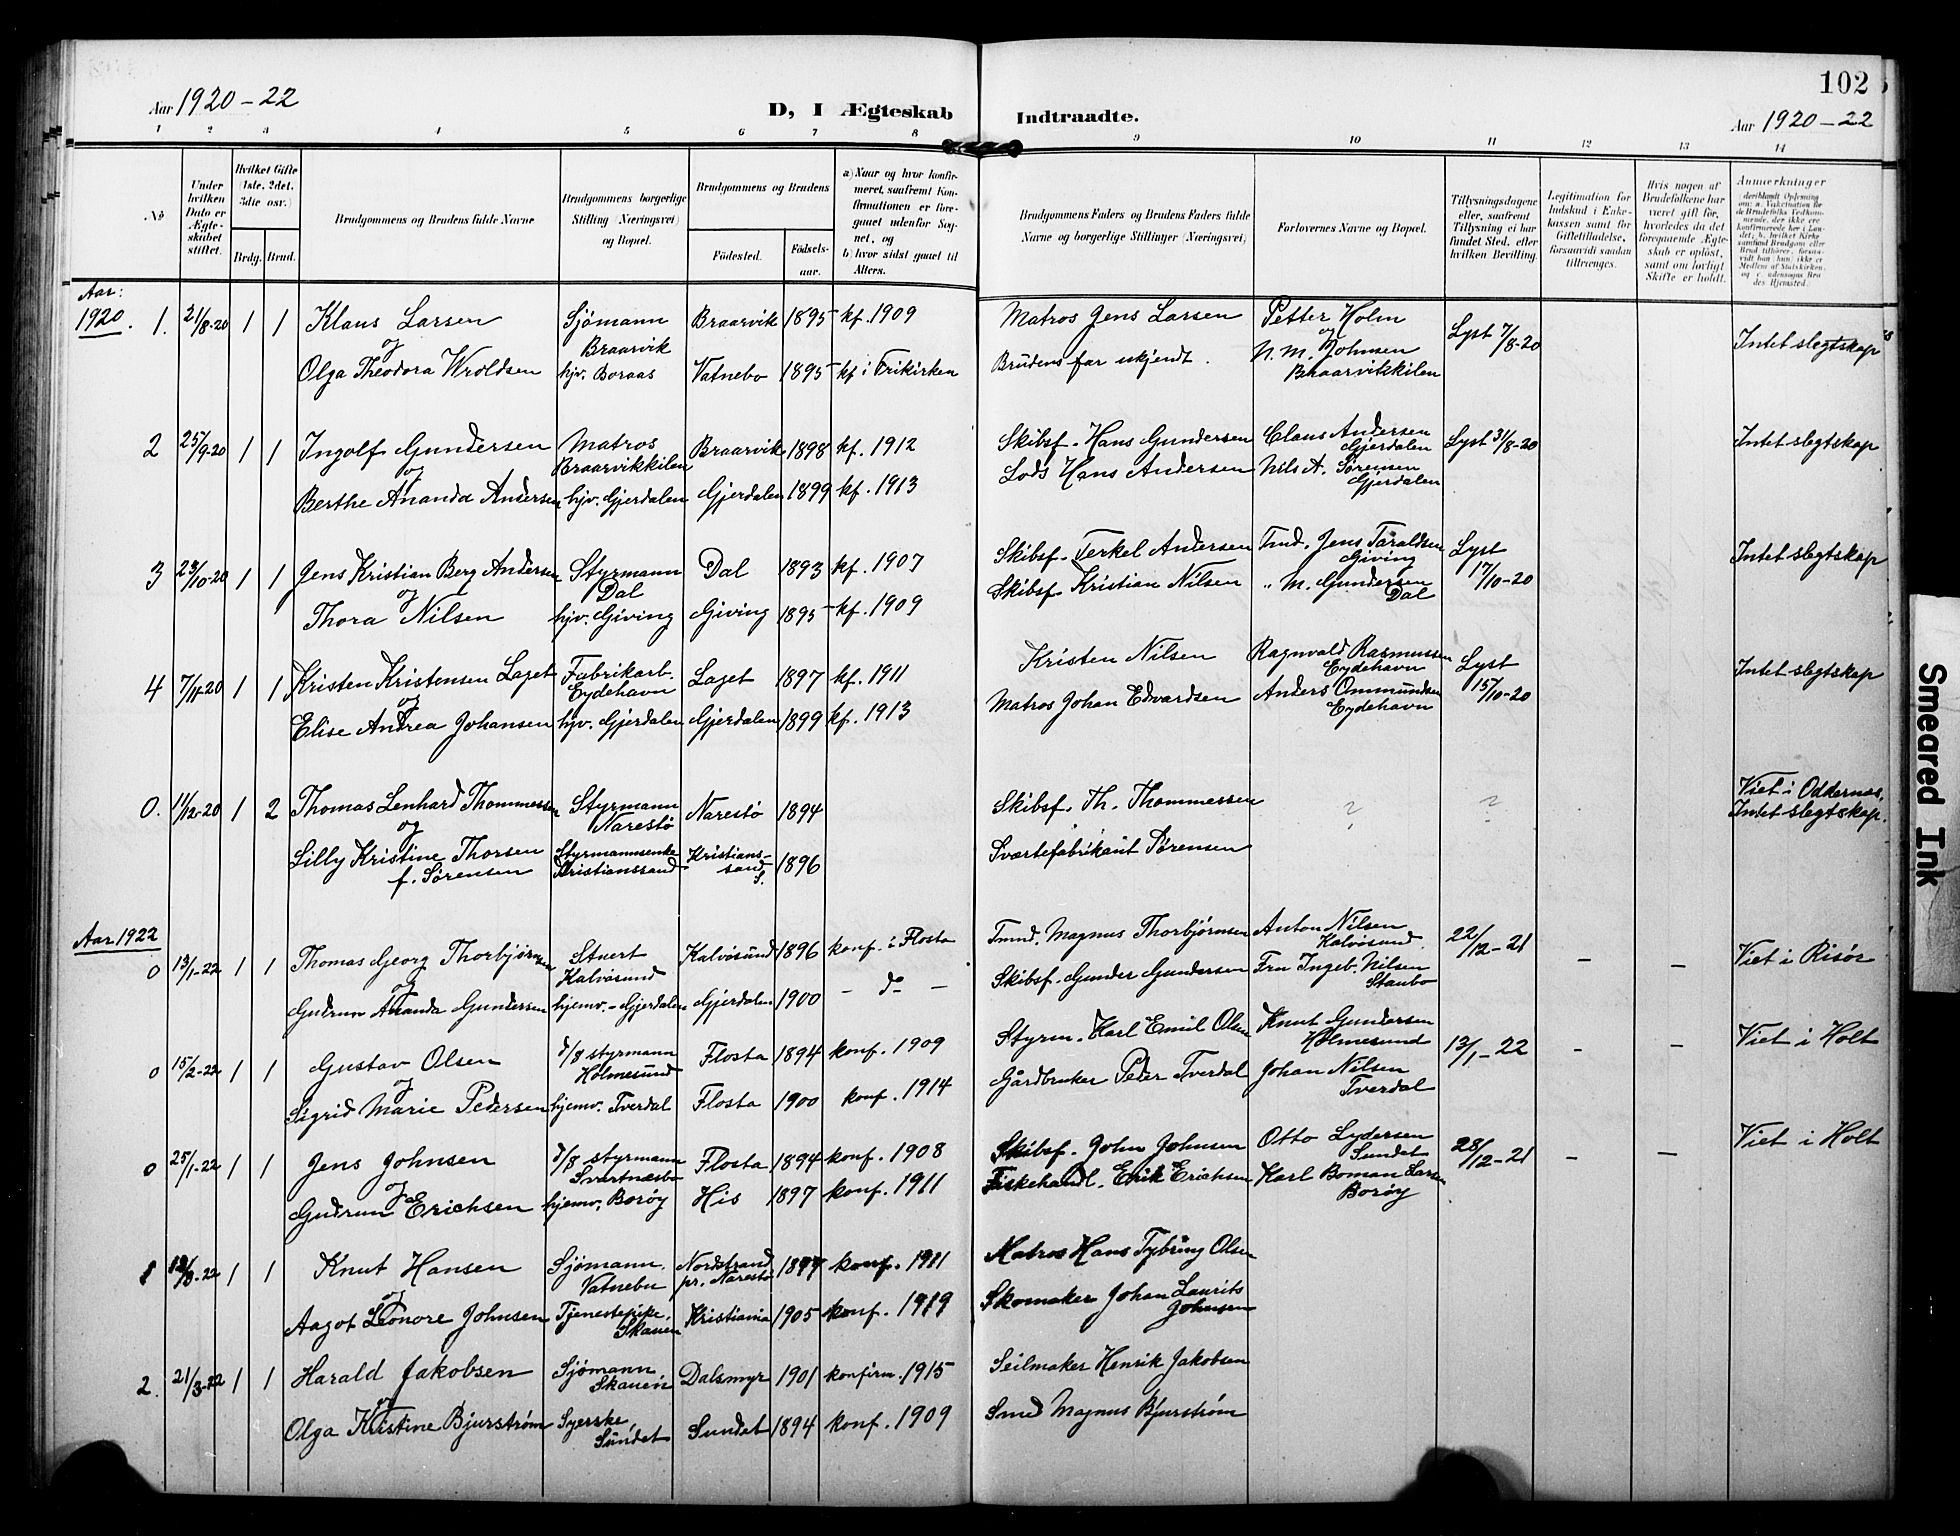 Aar 1920-22
D, I Ægteskab
Indtraadte.
102
Aar 1920-22
1 2 3 4 5 6 7 8 9 10 11 12 13 14
No
Under hvilken Dato er Ægteskabet stiftet.
Hvilket Gifte (1ste, 2det, 3die osv.)
Brdg. Brud.
Brudgommens og Brudens fulde Navne
Brudgommens borgerlige Stilling (Næringsvei) og Bopæl.
Brudgommens og Brudens
Fødested.
Fødselsaar.
a) Naar og hvor konfirmeret, saafremt Konfirmationen er foregaaet udenfor Sognet, og
b) hvor sidst gaaet til Alters.
Brudgommens Faders og Brudens Faders fulde Navne og borgerlige Stillinger (Næringsvei)
Forlovernes Navne og Bopæl.
Tillysningsdagene eller, saafremt Tillysning ei har fundet Sted, efter hvilken Bevilling.
Legitimation for Indskud i Enkekassen samt for Giftetilladelse, forsaavidt saadan tiltrænges.
Hvis nogen af Brudefolkene har været gift før, hvorledes da det foregaaende Ægteskab er opløst, samt om lovligt Skifte er holdt.
Anmerkninger
Aar:
1920. 1. 21/8-20 1 1 Klaus Larsen Sjømann Braarvik 1895 kf. 1909 Matros Jens Larsen Petter Holm Lyst 7/8-20 Intet slegtskap
og Braarvik og
Olga Theodora Wroldsen hjv. Boraas Vatnebo 1895 kf i Frikirken Brudens far ukjendt. N. M. Johnsen
Braarvikkilen
2 25/9-20 1 1 Ingolf Gundersen Matros Braarvik 1898 kf. 1912 Skibsf. Hans Gundersen Claus Andersen Lyst 31/8-20 Intet slegtskap
og Braarvikkilen Gjerdalen
Berthe Ananda Andersen hjv. Gjerdalen Gjerdalen 1899 kf. 1913 Lods Hans Andersen Nils A. Sørensen
Gjerdalen
3 23/10-20 1 1 Jens Kristian Berg Andersen Styrmann Dal 1893 kf. 1907 Skibsf. Terkel Andersen Tmd. Jens Taraldsen Lyst Intet slegtskap
og Dal Giving 17/10-20
Thora Nilsen hjv. Giving Giving 1895 kf. 1909 Skibsf. Kristian Nilsen " M. Gundersen
Dal
4 7/11-20 1 1 Kristen Kristensen Laget Fabrikarb. Laget 1897 kf. 1911 Kristen Nilsen Ragnvald Rasmussen Lyst Intet slegtskap
og Eydehavn Eydehavn 15/10-20
Elise Andrea Johansen hjv. Gjerdalen Gjerdalen 1899 kf. 1913 Matros Johan Edvardsen Anders Ommundsen
Eydehavn
0. 11/12-20 1 2 Thomas Lenhard Thommessen Styrmann Narestø 1894 Skibsf. Th. Thommessen ? ? Viet i Oddernes.
og Narestø Intet slegtskap.
Lilly Kristine Thorsen Styrmannsenke Kristians- 1896 Sværtefabrikant Sørensen
f. Sørensen Kristianssand sand S.
Aar 1922
0 13/1-22 1 1 Thomas Georg Thorbjørnsen Stuert Kalvøsund 1896 konf. i Flosta Tmnd. Magnus Thorbjørnsen Anton Nilsen 22/12-21 - - Viet i Risør
og Kalvøsund Kalvøsund
Gudrun Ananda Gundersen hjemv.-Gjerdalen Gjerdalen 1900 - d - Skibsf. Gunder Gundersen Fru Ingeb. Nilsen
Staubo
0 15/2-22 1 1 Gustav Olsen d/s styrmann Flosta 1894 konf. 1909 Styrm. Karl Emil Olsen Knut Gundersen 13/1-22 - - Viet i Holt
og Holmesund Holmesund
Sigrid Marie Pedersen hjemv. Tverdal Flosta 1900 konf. 1914 Gårdbruker Peder Tverdal Johan Nilsen
Tverdal
0 25/1-22 1 1 Jens Johnsen d/s styrmann Flosta 1894 konf. 1908 Skibsf. John Johnsen Otto Lydersen 28/12-21 - - Viet i Holt
og Svartnæsbo Sundet
Gudrun Erichsen hjemv. Borøy His 1897 konf. 1911 Fiskehandl. Erik Erichsen Karl Boman Larsen
Borøy
1 /3-22 1 1 Knut Hansen Sjømann Nordstrand 1897 konf. 1911 Matros Hans Tybring Olsen
og Vatnebu pr. Narestø
Aagot Leonore Johnsen Tjenestepike, Kristiania 1905 konf. 1919 Skomaker Johan Laurits
Skauen Johnsen
2. 21/3-22 1 1 Harald Jakobsen Sjømann Dalsmyr 1901 konfirm. 1915 Seilmaker Henrik Jakobsen
og Skauen
Olga Kristine Bjurstrøm Syerske, Sundet 1894 konf. 1909 Smed Magnus Bjurstrøm
Sundet
Smeared Ink